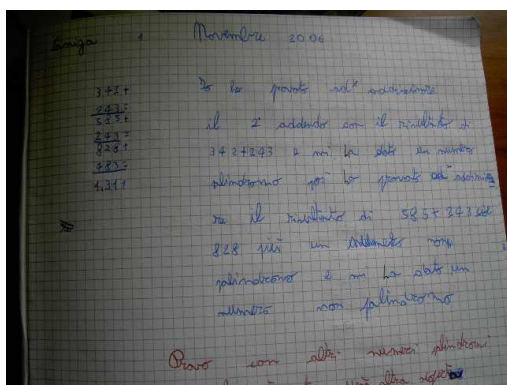 1 Novembre 2006
342+
243=
585+
243=
828+
483=
1.311
Io ho provato ad addizionare
il 2° addendo con il risultato
342+243 e mi ha dato un numero
palindromo poi ho provato ad
re il risultato di 585+243
828 più un non
palindromo e mi ha dato un
numero non palindromo
Provo con altri numeri palindromi
altra